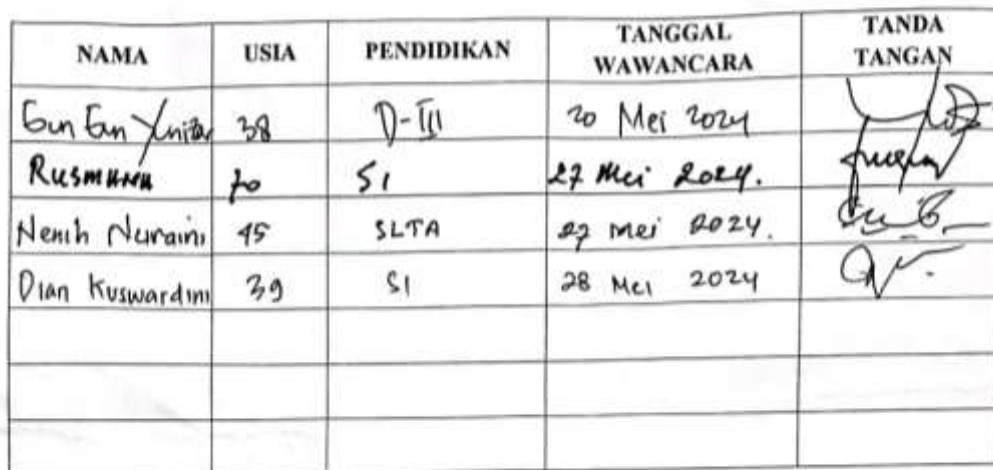 NAMA USIA PENDIDIKAN TANGGAL WAWANCARA TANDA TANGAN
Gun Gun 38 D-III 20 Mei 2024
70 S1 27 Mei 2024.
Nenih Nuraini 45 SLTA 27 Mei 2024.
Dian Kuswardini 39 S1 28 Mei 2024